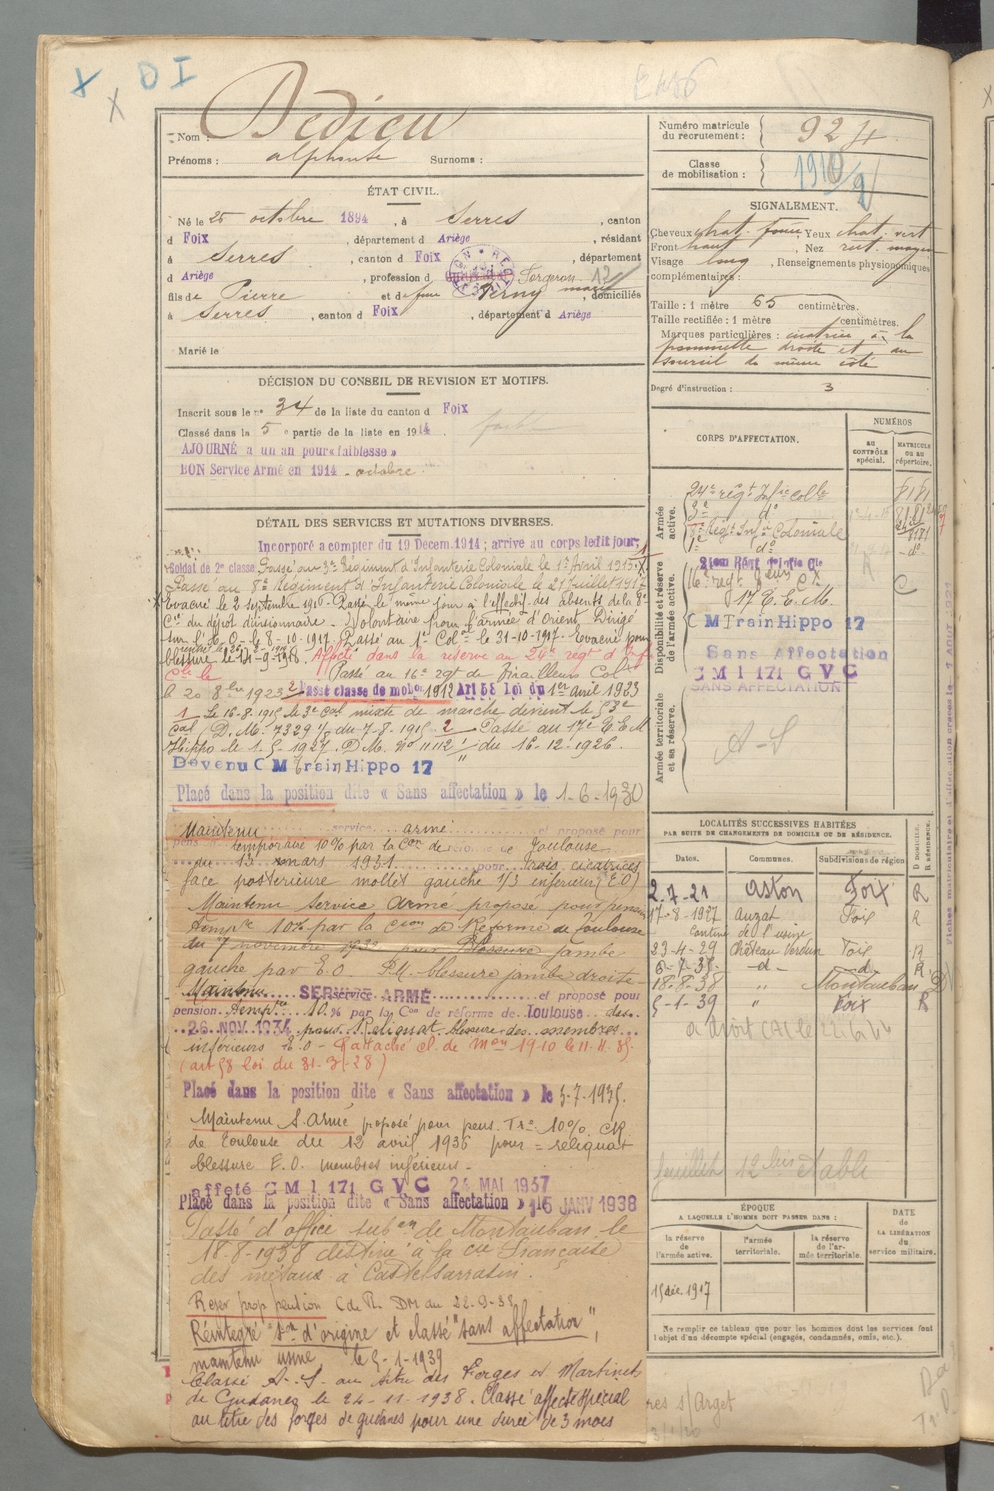 X X D I
Nom : Dedieu
Prénoms : alphonse Surnoms :
ÉTAT CIVIL.
Né le 25 octobre 1894, à Serres, canton
d Foix, département d Ariège, résidant
à Serres, canton d Foix, département
d Ariège, profession d Forgeron
fils de Pierre et de feue Verny marie, domiciliés
à Serres, canton d Foix, département d Ariège
Marié le
DÉCISION DU CONSEIL DE REVISION ET MOTIFS.
Inscrit sous le n° 34 de la liste du canton d Foix
Classé dans la 5e partie de la liste en 1914. faible
AJOURNÉ à un an pour « faiblesse »
BON Service Armé en 1914 - octobre
DÉTAIL DES SERVICES ET MUTATIONS DIVERSES.
Incorporé à compter du 19 Décem. 1914 ; arrivé au corps ledit jour,
Soldat de 2e classe. Passé au 3e Régiment d'Infanterie Coloniale le 1er Avril 1915.
Passé au 8e Régiment d'Infanterie Coloniale le 21 Juillet 1917
Evacué le 2 septembre 1916. Passé le même jour à l'effectif des absents de la 8e
Cie du dépôt divisionnaire - Volontaire pour l'armée d'Orient. Dirigé
sur l'A.O. le 8-10-1917. Passé au 1er Col le 31-10-1917. Evacué pour
blessure le 14-9-1918. Affecté dans la réserve au 24e régt d'Inf
Cle le Passé au 16e rgt de Tirailleurs Col
le 20 8bre 1923 2 Passé classe de mobon 1912 Art 58 Loi du 1er Avril 1923
1 Le 16-8-1915 le 3e Col mixte de marche devient le 53e
Col (D.M. 7329 1/8 du 7-8-1915. 2 Passé au 17e E.E.M
Hippo le 1-5-1927. D.M. N° 11112 1/11 du 16-12-1926.
Devenu C M Train Hippo 17
Placé dans la position dite « Sans affectation » le 1-6-1930
Maintenu service armé et proposé pour
pension temporaire 10% par la Con de réforme de Toulouse
du 13 mars 1931 pour Trois cicatrices
face postérieure mollet gauche 1/3 inférieur (E.O)
Maintenu Service Armé proposé pour pension
tempre 10% par la Ccion de Réforme de Toulouse
du 7 novembre 1932 pour Blessure jambe
gauche par E.O. P.M. blessure jambe droite
Maintenu SERVICE ARMÉ et proposé pour
pension tempre 10 % par la Con de réforme de Toulouse des
26 NOV. 1934 pour Reliquat blessure des membres
inférieurs E.O - Rattaché cl. de Mon 1910 le 11.4.35.
(art 58 loi du 31-3-28)
Placé dans la position dite « Sans affectation » le 5-7-1935.
Maintenu S. Armé proposé pour pens. Tre 10% CR
de Toulouse du 12 avril 1936 pour = reliquat
blessure E.O. membres inférieurs -
affeté C M I 171 G V C 24 MAI 1937
Placé dans la position dite « Sans affectation » 15 JANV 1938
Passé d'office subon de Montauban le
18-8-1938 destiné à la Cie Française
des métaux à Castelsarrasin.
Réser prop pention C de R. DM du 22-9-38
Réintégré son d'origine et classé "sans affectation",
maintenu usine le 5-1-1939
Classé A.S. au titre des Forges et Martinets
de Gudanes le 24-11-1938. Classé affecté spécial
au titre des forges de gudanes pour une durée de 3 mois
Numéro matricule du recrutement : 924
Classe de mobilisation :
SIGNALEMENT.
Cheveux chat. foncé Yeux chat. vert
Front haut, Nez rect. moyen
Visage long, Renseignements physionomiques
complémentaires :
Taille : 1 mètre 65 centimètres.
Taille rectifiée : 1 mètre centimètres.
Marques particulières : cicatrice à la
pommette droite et au
sourcil du même côté
Degré d'instruction : 3
CORPS D'AFFECTATION.
NUMÉROS
AU CONTRÔLE spécial.
MATRICULE OU AU répertoire.
Armée active.
24e régt Infie colle 8181
3e do
8e Régt Infie Coloniale 8181
1er do do
Disponibilité et réserve de l'armée active.
16e régt C
17 E.E.M.
C M Train Hippo 17
Sans Affectation
C M I 171 G V C
SANS AFFECTATION
Armée territoriale et sa réserve.
A-S
LOCALITÉS SUCCESSIVES HABITÉES
PAR SUITE DE CHANGEMENTS DE DOMICILE OU DE RÉSIDENCE.
Dates. Communes. Subdivisions de région D DOMICILE. R RÉSIDENCE.
2.7-21 Aston Foix R
17-8-1927 Auzat Foix R
Cantine de l'usine
23-4-29 Château Verdun Foix R
6-7-35- -d- -d- R
18.8-38 " Montauban D
5-1-39 " Foix R
feuillet 12 bis établi
ÉPOQUE
A LAQUELLE L'HOMME DOIT PASSER DANS :
la réserve de l'armée active.
l'armée territoriale.
la réserve de l'armée territoriale.
DATE de LA LIBÉRATION du service militaire.
15 déc. 1917
Ne remplir ce tableau que pour les hommes dont les services font
l'objet d'un décompte spécial (engagés, condamnés, omis, etc.).
res s/Arget